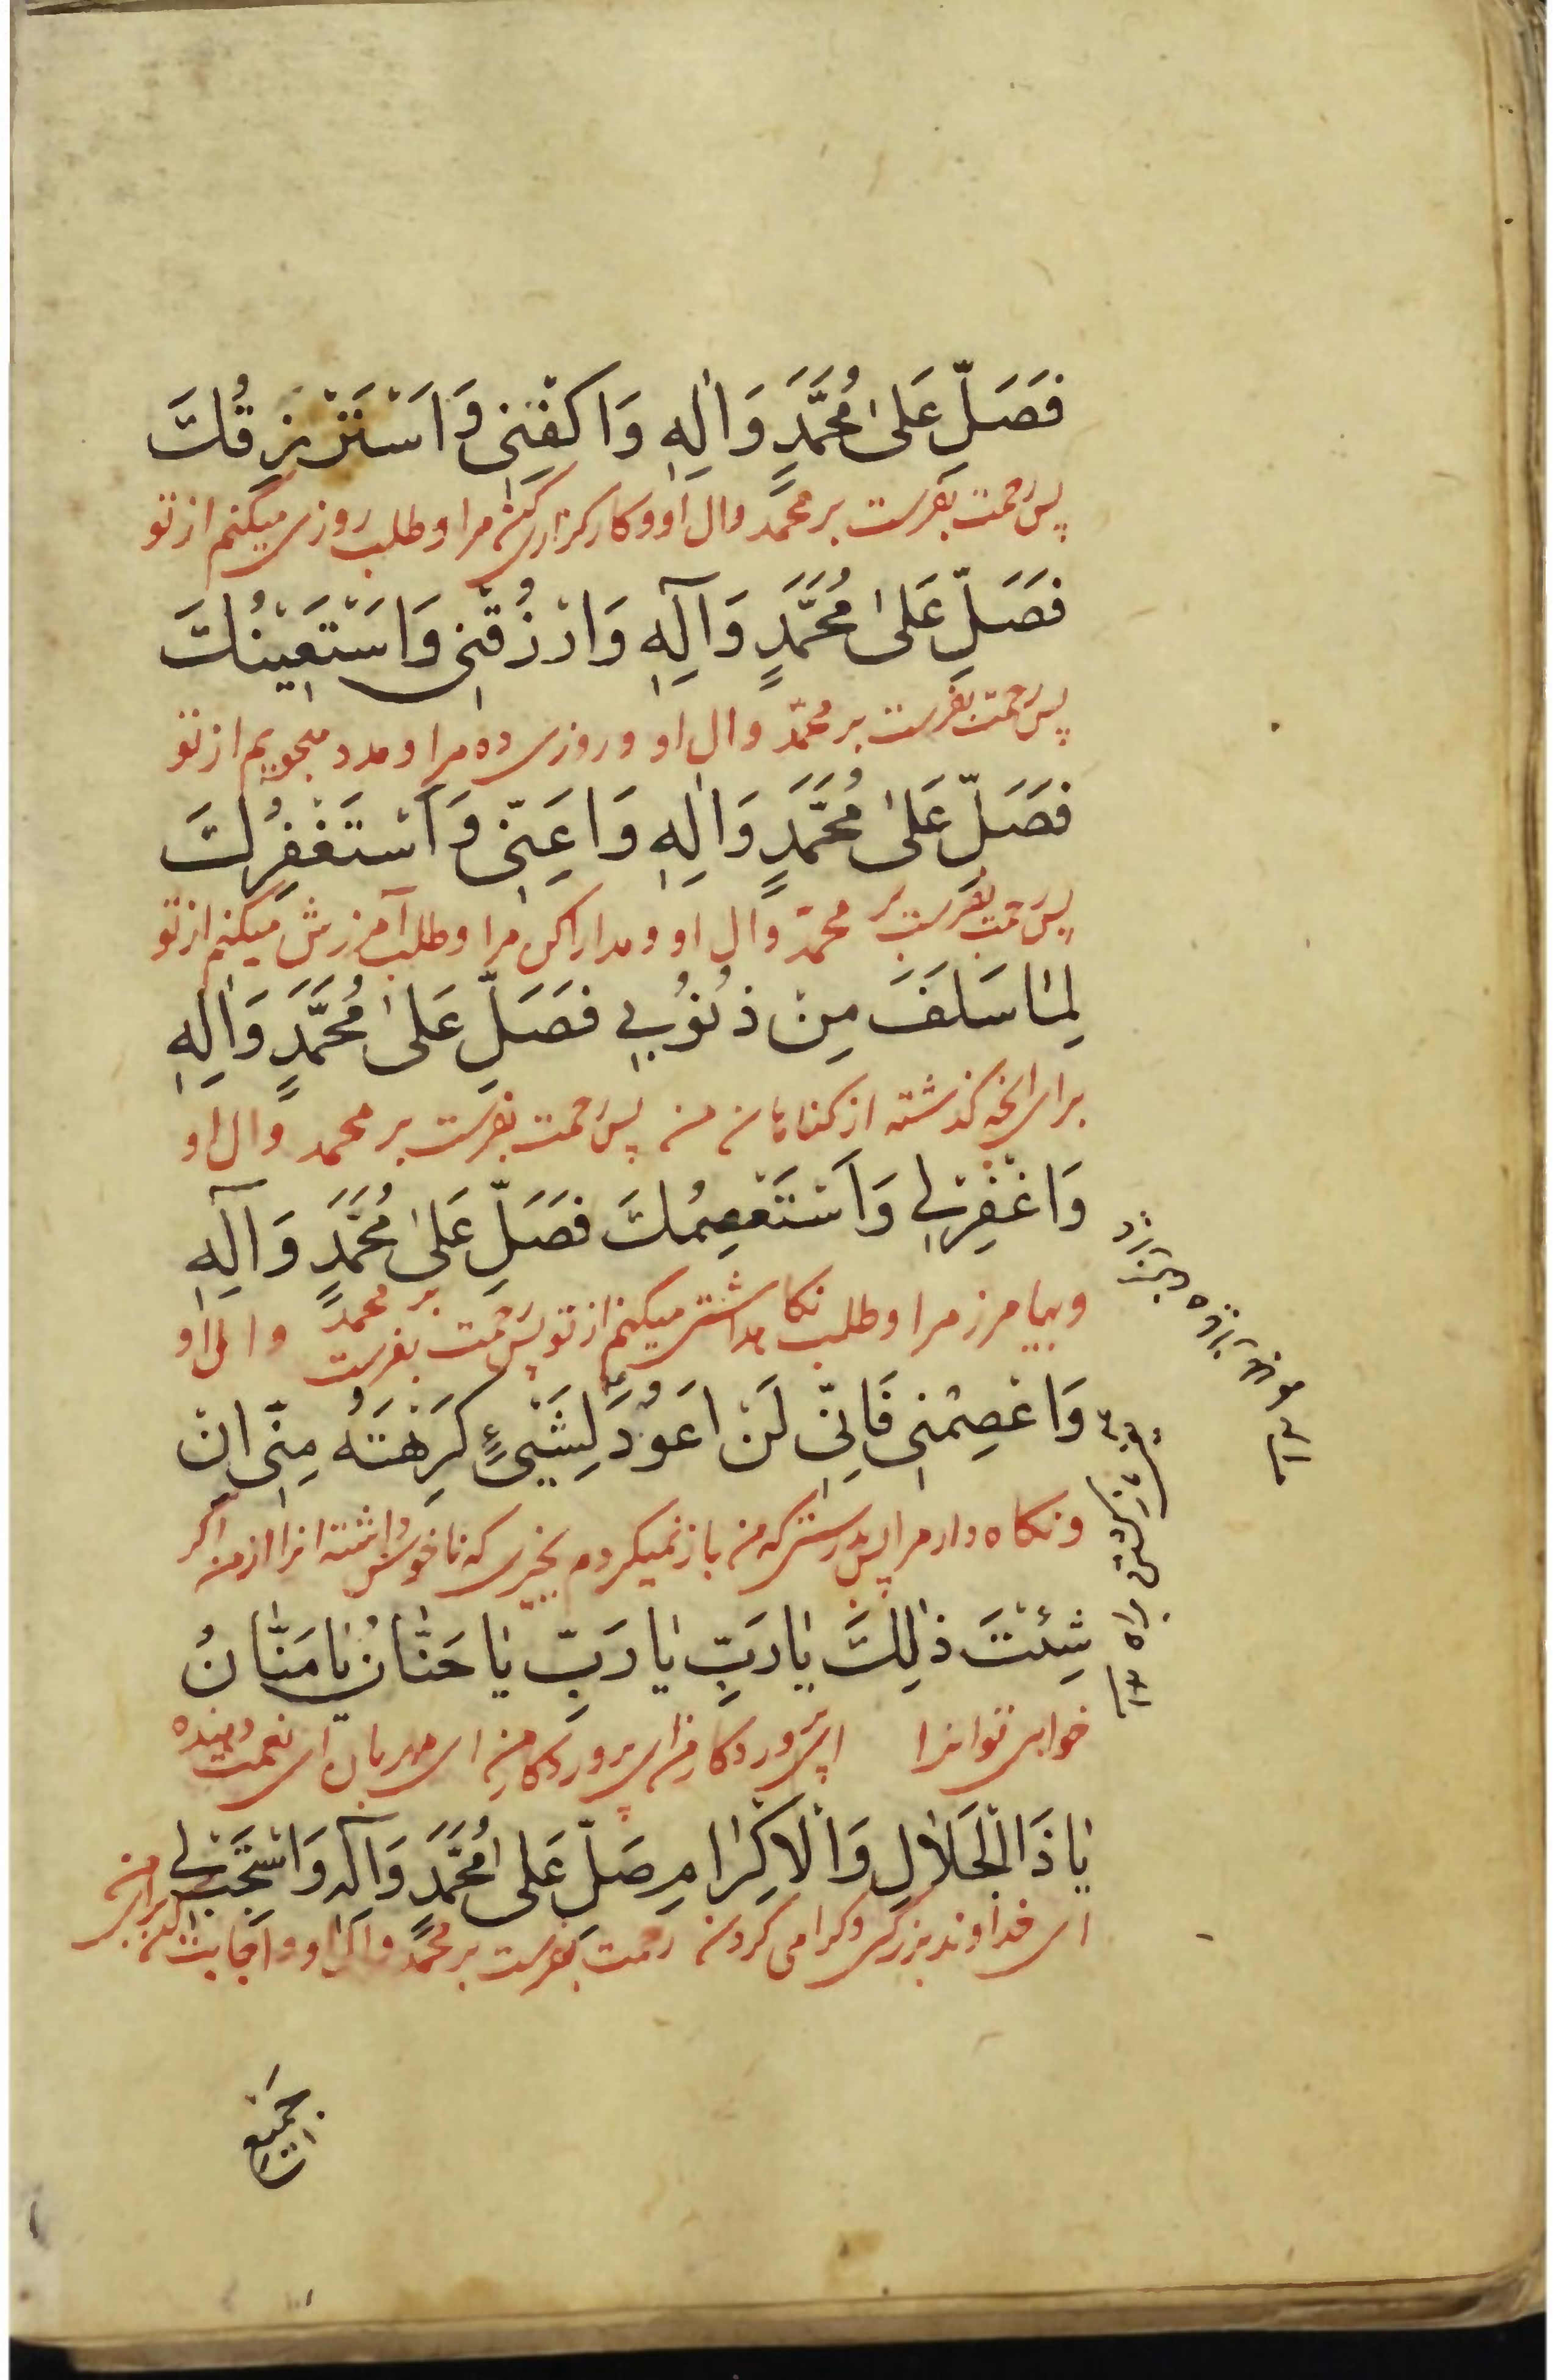 فَصَلِّ عَلىٰ مُحَمَّدٍ وَاٰلِهِ وَاكْفِنِی وَاَسْتَرْزِقُكَ
پس رحمت بفرست بر محمد وال او و کارگزاری کن مرا و طلب روزی میکنم از تو
فَصَلِّ عَلىٰ مُحَمَّدٍ وَآلِهِ وَارْزُقْنِی وَاَسْتَعِیْنُكَ
پس رحمت بفرست بر محمّد وال او و روزی ده مرا و مدد میجویم از تو
فَصَلِّ عَلىٰ مُحَمَّدٍ وَاٰلِهِ وَاَعِنِّی وَاَسْتَغْفِرُكَ
پس رحمت بفرست بر محمّد وال او و مدارا کن مرا و طلب آمرزش میکنم از تو
لِمٰا سَلَفَ مِنْ ذُنُوُبِی فَصَلِّ عَلىٰ مُحَمَّدٍ وَاٰلِهِ
برای انچه گذشته از کناهان من پس رحمت بفرست بر محمد وال او
وَاغْفِرْلِی وَاَسْتَعْصِمُكَ فَصَلِّ عَلىٰ مُحَمَّدٍ وَآلِهِ
و بیامرز مرا و طلب نکاهداشتی میکنم از تو پس رحمت بفرست بر محمد وال او
وَاعْصِمْنِی فَاِنِّی لَنْ اَعُوُدَ لِشَیْیءٍ كَرِهْتَهُ مِنِّی اِنْ
و نکاه دار مرا پس بدرستی که من باز نمیکردم بچیزی که ناخوش داشته انرا از من اکر
شِئْتَ ذٰلِكَ یٰا رَبِّ یٰا رَبِّ یٰا حَنّٰانُ یٰا مَنّٰانُ
خواهی تو انرا ای پروردکار من ای پروردکار من ای مهربان ای نعمت دهنده
یٰا ذَا الْجَلاٰلِ وَالْاِكْرٰامِ صَلِّ عَلىٰ مُحَمَّدٍ وَآلِهِ وَاسْتَجِبْ لِی
ای خداوند بزرکی و کرامی کردن رحمت بفرست بر محمد وال او و اجابت کن برای من
جَمیٖعَ